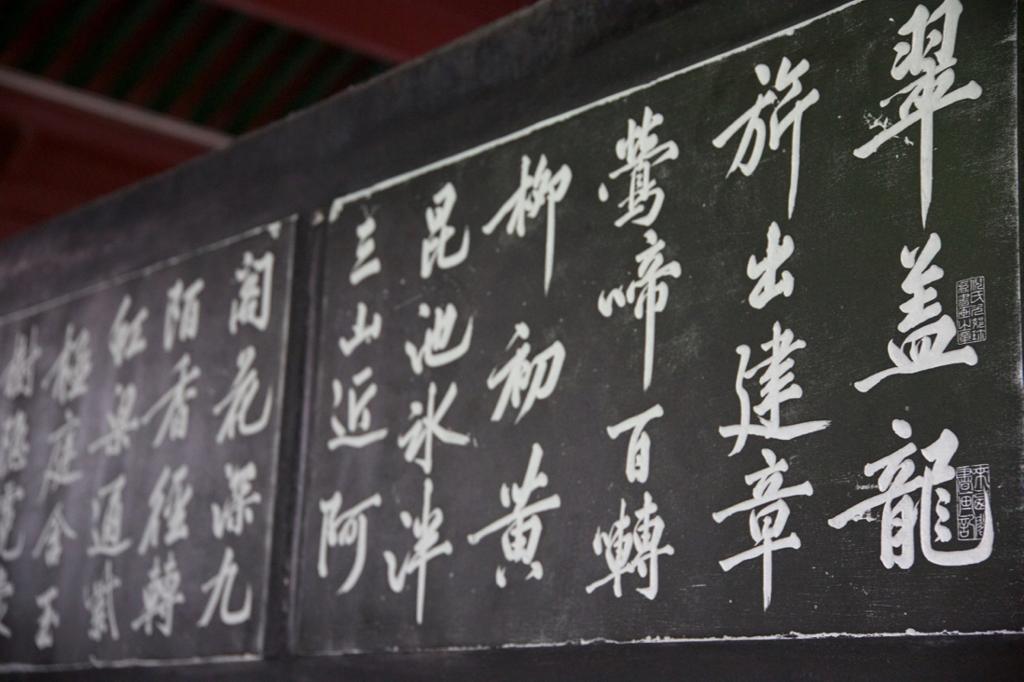 翠盖龍
旂出建章
鶯啼百轉
柳初黄
昆池氷泮
三山近
阿
閣花深九
陌香徑轉
紅梁通紫
極庭含玉
樹隠